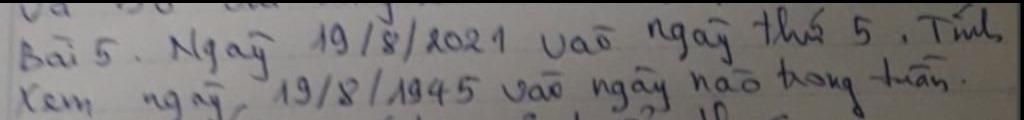 Bài 5. Ngày 19/8/2021 vào ngày thứ 5. Tính
xem ngày 19/8/1945 vào ngày nào trong tuần.